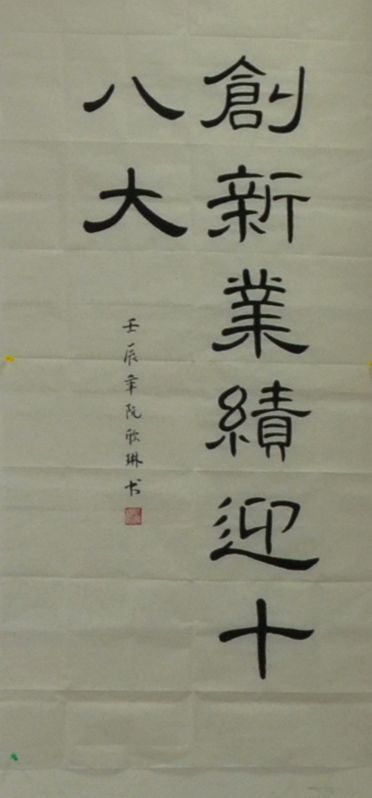 創新業績迎十
八大
壬辰年阮欣琳书